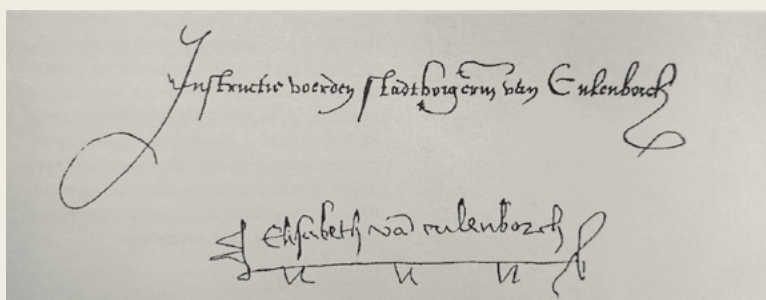 Instructie voerden stadtborgerm van Culenborch
Elisabeth vā culenborch